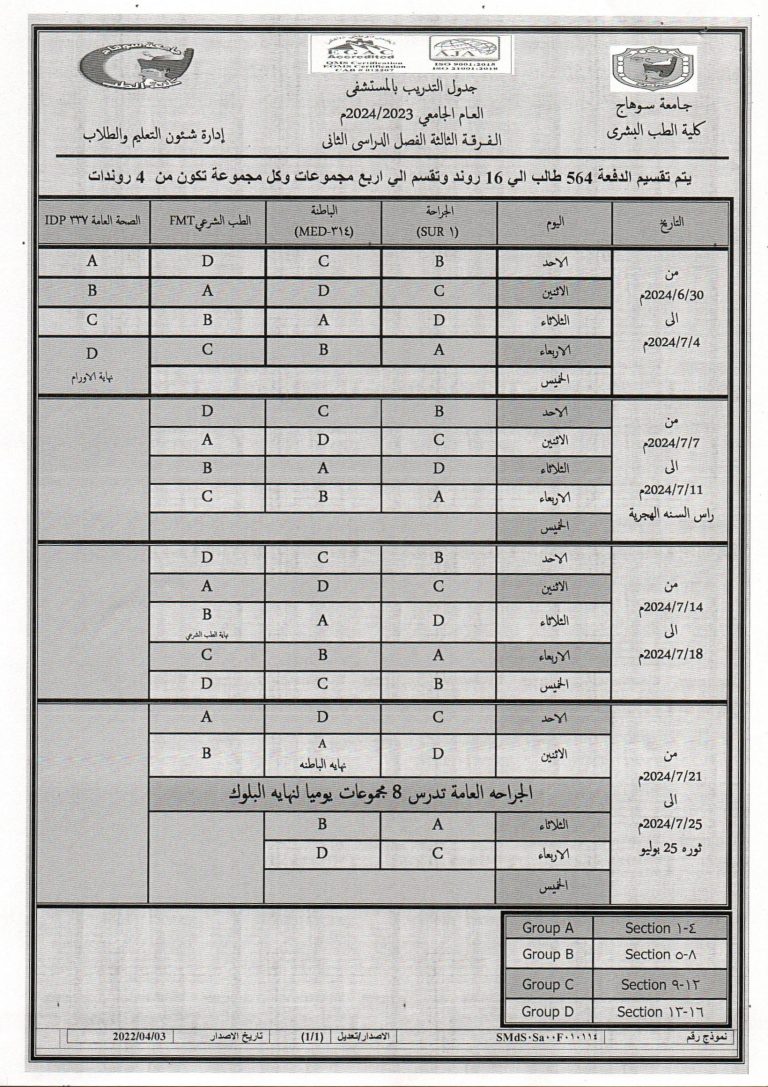 جامعة سوهاج
كلية الطب
EGAC
Accredited
QMS Certification
EOMS Certification
CAB # 012207
AJA
ISO 9001:2015
ISO 21001:2018
جامعة سوهاج
كلية الطب البشرى
جدول التدريب بالمستشفى
العام الجامعي 2024/2023م
الفرقة الثالثة الفصل الدراسى الثانى
إدارة شئون التعليم والطلاب
يتم تقسيم الدفعة 564 طالب الي 16 روند وتقسم الي اربع مجموعات وكل مجموعة تكون من 4 روندات
التاريخ اليوم الجراحة (SUR ١) الباطنة (MED-٣١٤) الطب الشرعي FMT الصحة العامة IDP ٣٣٧
من 2024/6/30م الى 2024/7/4م
الاحد B C D A
الاثنين C D A B
الثلاثاء D A B C
الاربعاء A B C D
نهاية الاورام
الخميس
من 2024/7/7م الى 2024/7/11م
راس السنه الهجرية
الاحد B C D
الاثنين C D A
الثلاثاء D A B
الاربعاء A B C
الخميس
من 2024/7/14م الى 2024/7/18م
الاحد B C D
الاثنين C D A
الثلاثاء D A B
نهاية الطب الشرعي
الاربعاء A B C
الخميس B C D
من 2024/7/21م الى 2024/7/25م
ثوره 25 يوليو
الاحد C D A
الاثنين D A B
نهايه الباطنه
الجراحه العامة تدرس 8 مجموعات يوميا لنهايه البلوك
الثلاثاء A B
الاربعاء C D
الخميس
Group A Section ١-٤
Group B Section ٥-٨
Group C Section ٩-١٢
Group D Section ١٣-١٦
نموذج رقم SMdS٠Sa٠٠F٠١٠١١٤ الاصدار/تعديل (1/1) تاريخ الاصدار 2022/04/03